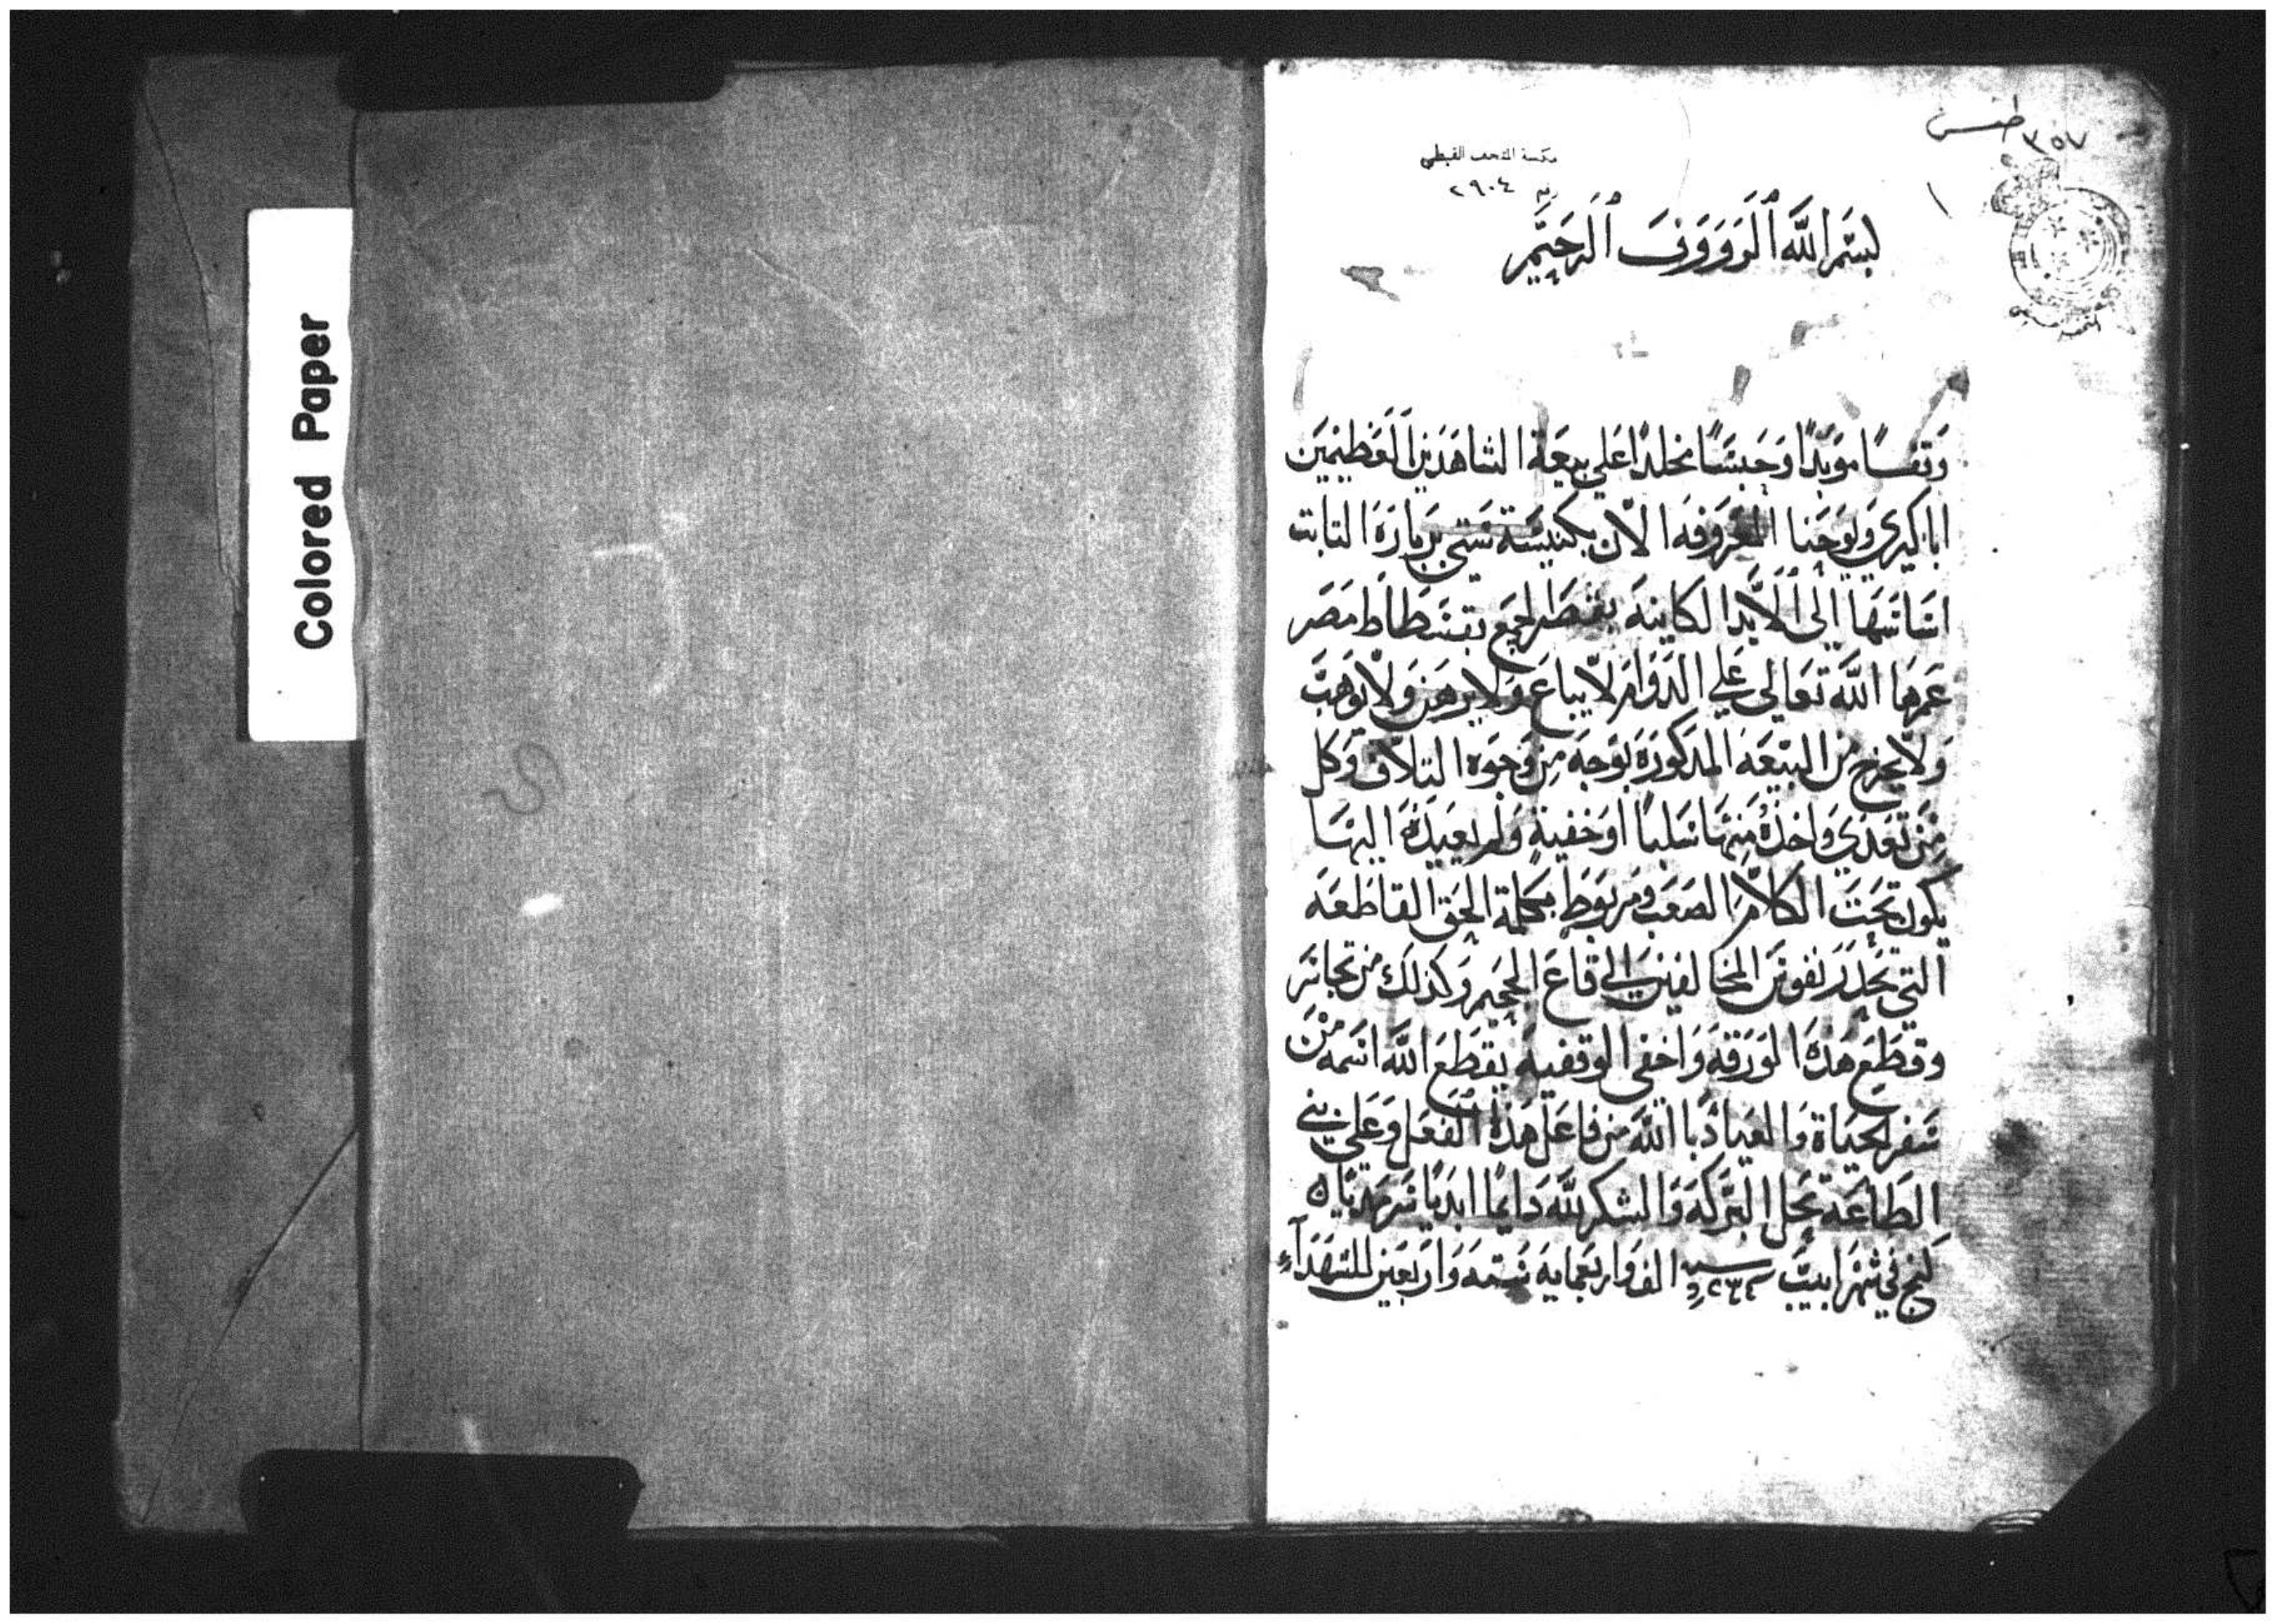 Colored Paper
٣٥٧ طقس
مكتبة المتحف القبطي
رقم ٢٩٠٤
١
بسم الله الرووف الرحيم
وقفًا موبدًا وحبسًا مخلدًا علي بيعة الشاهدين العظيمين
اباكيري ويوحنا المعروفه الان بكنيسة ستي بربارة الثابت
اساسها إلى الابد الكاينه بقصر الجمع بفسطاط مصر
عمرها الله تعالي علي الدوام لا يباع ولا يرهن ولا يوهب
ولا يخرج من البيعة المدكورة بوجه من وجوه التلاف وكل
من تعدي واخده منها سلبًا او خفية ولم يعيده اليها
يكون تحت الكلام الصعب ومربوط بكلمة الحق القاطعه
التي تحدر نفوس المخالفين الي قاع الجحيم وكذلك من تجاسر
وقطع هذه الورقه واخفي الوقفيه يقطع الله اسمه من
سفر الحياة والعياذ با الله من فاعل هذه الفعل وعلي بني
الطاعة تحل البركة والشكر لله دايمًا ابديًا سرمديًا
في شهر ابيب سنة الف واربعماية ستة واربعين للشهدآء